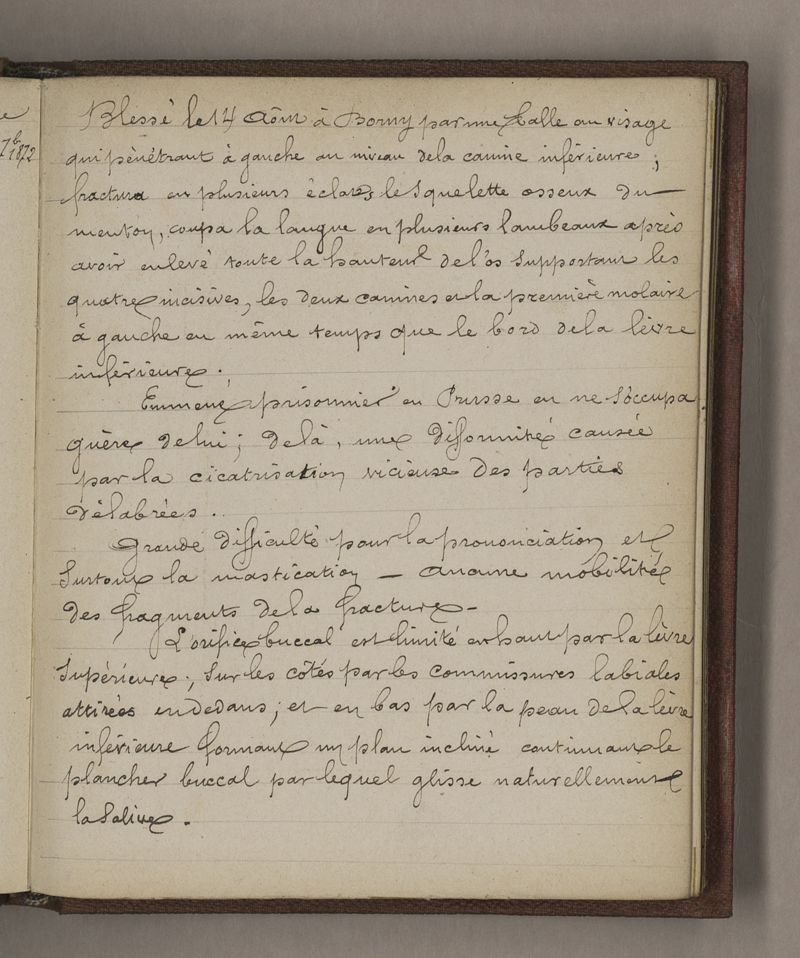 e
7b 1872
Blessé le 14 Août à Borny par une balle au visage
qui pénétrant à gauche au niveau de la canine inférieure,
fractura en plusieurs éclats le squelette osseux du
menton, coupa la langue en plusieurs lambeaux après
avoir enlevé toute la hauteur de l'os supportant les
quatre incisives, les deux canines et la première molaire
à gauche en même temps que le bord de la lèvre
inférieure.
Emmené prisonnier en Prusse on ne s'occupa
guère de lui; de là, une difformité causée
par la cicatrisation vicieuse des parties
délabrées.
Grande difficulté pour la prononciation et
surtout la mastication — aucune mobilité
des fragments de la fracture —
L'orifice buccal est limité en haut par la lèvre
supérieure; sur les côtés par les commissures labiales
attirées en dedans; et en bas par la peau de la lèvre
inférieure formant un plan incliné continuant le
plancher buccal par lequel glisse naturellement
la salive.